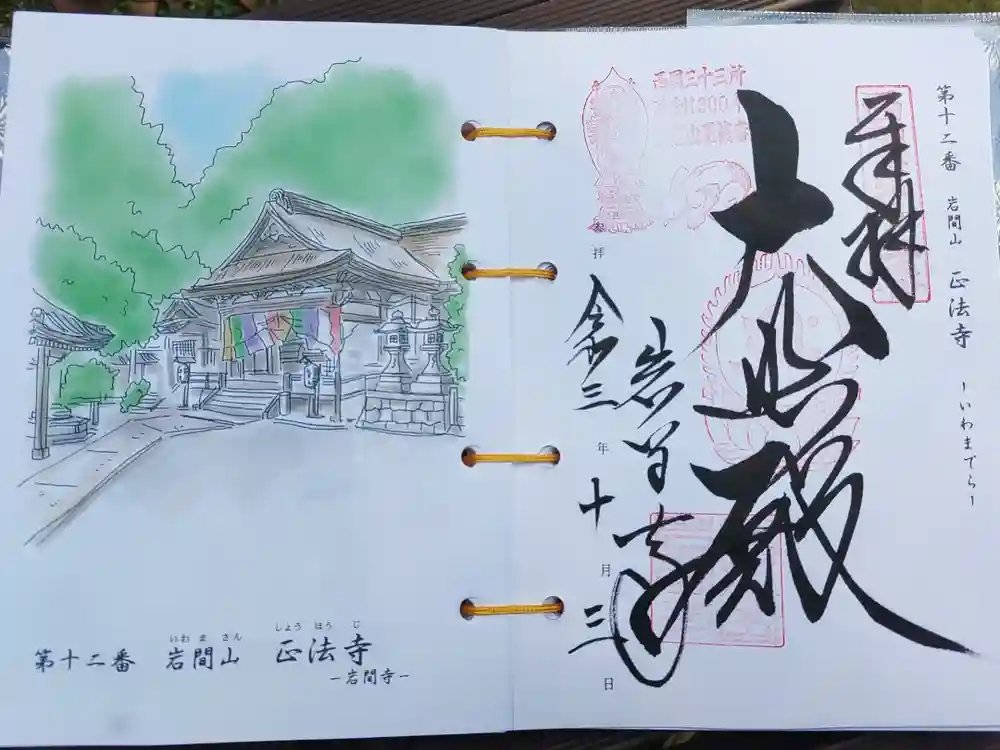 第十二番 岩間山 正法寺 -いわまでら-
奉拝
大悲殿
岩間寺
西国三十三所
参拝
令和三年十月三日
いわ ま さん しょう ほう じ
第十二番 岩間山 正法寺
-岩間寺-